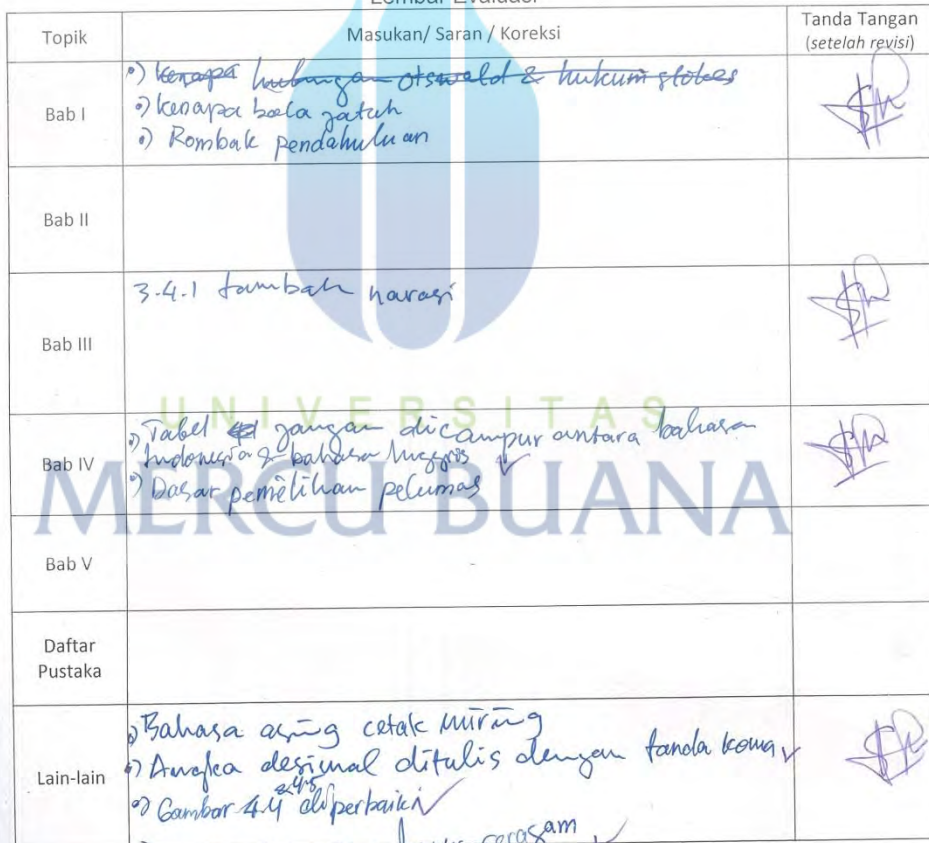 Lembar Evaluasi
Topik
Masukan/ Saran / Koreksi
Tanda Tangan
(setelah revisi)
Bab I
•) kenapa hubungan otswald & hukum stokes
•) kenapa bola jatuh
•) Rombak pendahuluan
Bab II
Bab III
3.4.1 tambah narasi
UNIVERSITAS
Bab IV
•) Tabel jangan dicampur antara bahasa
Indonesia & bahasa Inggris ✓
•) Dasar pemilihan pelumas
MERCU BUANA
Bab V
-
Daftar
Pustaka
Lain-lain
•) Bahasa asing cetak miring
•) Angka desimal ditulis dengan tanda koma ✓
•) Gambar 4.4 & 4.5 diperbaiki ✓
seragam ✓